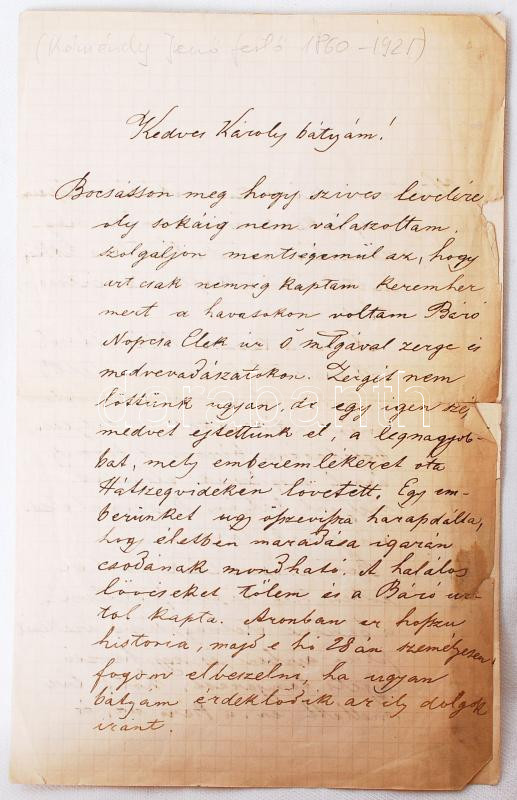 (Körmendy Jenő festő 1860-1921)
Kedves Károly bátyám!
Bocsásson meg hogy szives levelére
oly sokáig nem válaszoltam,
szolgáljon mentségemül az, hogy
azt csak nemrég kaptam
mert a havasokon voltam Báró
Nopcsa Elek úr Ő mlgával zerge és
medvevadászatokon. Zergét nem
lőttünk ugyan, de egy igen szép
medvét ejtettünk el, a legnagyob-
bat, mely emberemlékezet óta
Hátszegvidékén lövetett. Egy em-
berünket ugy öszevissza harapdálta,
hogy életben maradása igazán
csodának mondható. A halálos
lövéseket tőlem és a Báró ur-
tól kapta. Azonban ez hosszu
historia, majd e hó 28án személyesen
fogom elbeszélni, ha ugyan
bátyám érdeklődik az ily dolgok
iránt.